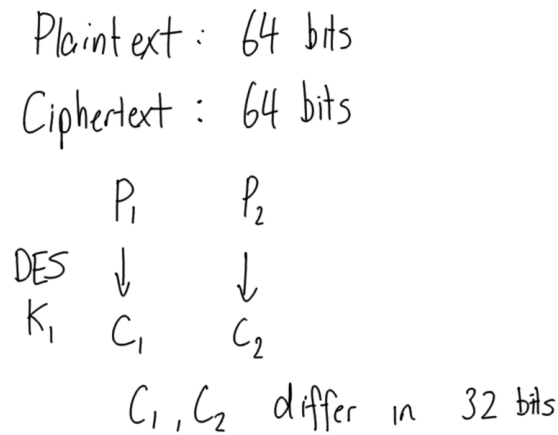 Plaintext : 64 bits
Ciphertext : 64 bits
P₁ P₂
DES ↓ ↓
K₁ C₁ C₂
C₁ , C₂ differ in 32 bits